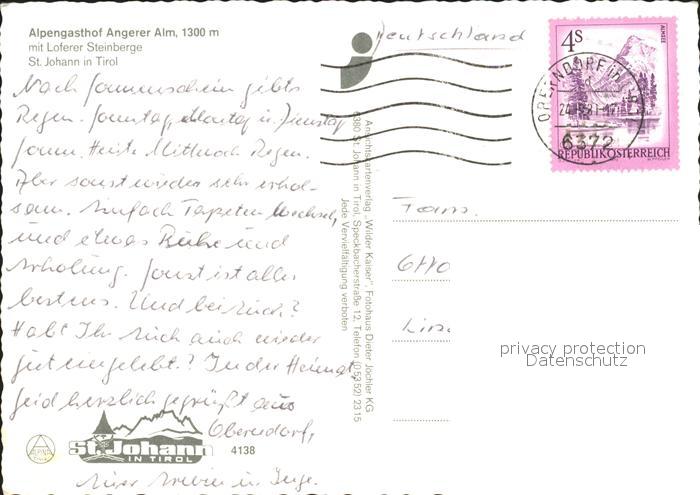 Alpengasthof Angerer Alm, 1300 m
mit Loferer Steinberge
St. Johann in Tirol
Deutschland
4S
ALMSEE
REPUBLIK ÖSTERREICH
OBERNDORF in Tirol
6372
Nach Sonnenschein gibts
Regen. Sonntag, Montag u. Dienstag
Sonne. Heute Mittwoch Regen.
Aber sonst wieder sehr erhol-
sam. Einfach Tapeten Wechsel,
und etwas Ruhe und
Erholung. Sonst ist alles
bestens. Und bei Euch?
Habt Ihr Euch auch wieder
gut eingelebt? In der Heimat,
Seid herzlich gegrüßt aus
Oberndorf,
Ansichtskartenverlag „Wilder Kaiser", Fotohaus Dieter Jöchler KG
6380 St. Johann in Tirol, Speckbacherstraße 12, Telefon (05352) 2315
Jede Vervielfältigung verboten
Fam.
Otto
privacy protection
Datenschutz
St. Johann
IN TIROL
4138
ALPINA